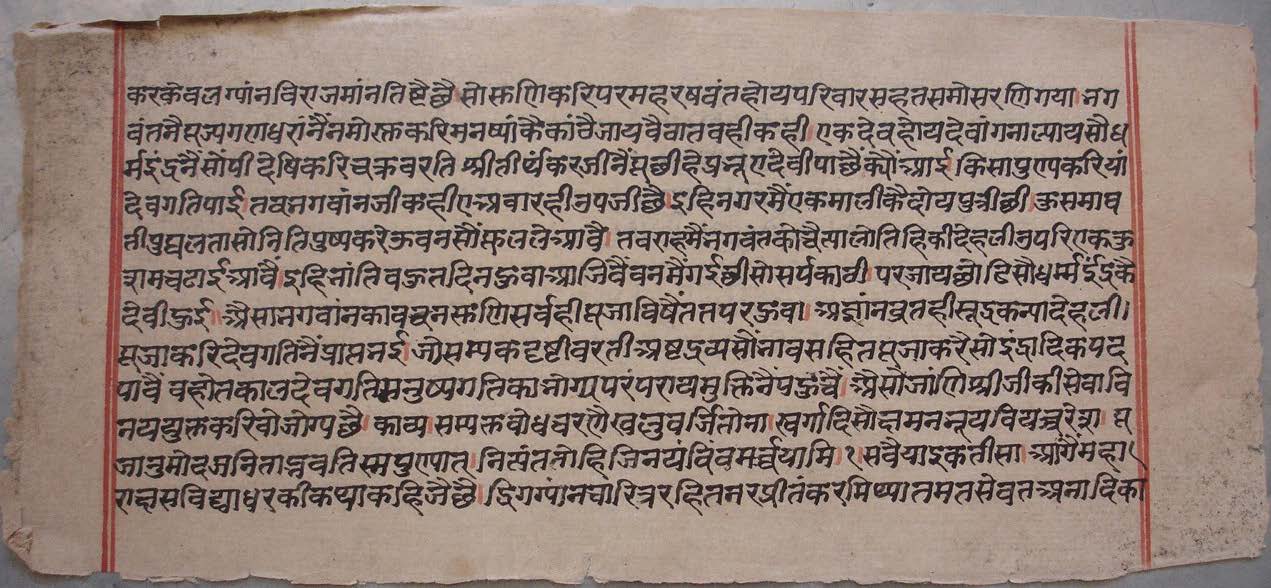 करकेवलग्यांनविराजमांनतिष्टैछै। सोसुणिकरिपरमहरषवंतहोयपरिवारसहतसमोसरणिगया। भग
वंतनैपूज्यगणधरांनैंनमोस्तुकरिमनष्यांकैकोठैजायवैठातवहीकही एकदेवहोयदेवांगनाल्यायसौध
र्मइंद्रनैंसोंपी देषिकरिचक्रवरति श्रीतीर्थंकरजीनैंपूछीहेप्रभूएदेवीपाछैंक्योंआई किसापुण्यकरियां
देवगतिपाई तवभगवांनजीकहीएअवारहीउपजीछै। इहिनगरमैंएकमालीकैदोयपुत्रीछी ऊसमाष
तीपुष्पलतासोनितिपुष्पकरंऊवनसौंफूललेआवै। तवराहमैंभगवंतकोचैत्यालोतिहिकीदेहलीउपरिएकफु
चढाईआवैं इहिभांतिवहुतदिनहुवाआजिवैंवनमैंगईछीसोसर्पकाठी परजायछोडिसौधर्म्मइंद्रकै
देवीहुई। औसाभगवांनकावचनसुणिसर्वहीपूजाविषैंततपरहुवा। अज्ञांनव्रतहीसूद्रकन्यादेहली।
पूजाकरिदेवगतिनैंप्राप्तभई। जोसम्यकदृष्टीवरतीअष्टद्रव्यसौंभावसहितपूजाकरैसोइंद्रादिकपद
पावैं वहोतकालदेवगतिमनुष्यगतिकाभोग्यपरंपरायमुक्तिनैंपहुंचैं। औसौजांणिश्रीजीकीसेवावि
नययुक्तकरिवोजोग्यछै। काव्य सम्यक्तवोधचरणै
जानुमोद निसंततोहिजिनयंविंवमर्च्चयामि १ सवैयाइकतीसा। आगैंमहा
राक्षसविद्याधरकीकथाकहिजैछै। द्रिगग्यांनचारित्ररहितनरप्रीतंकरमिथ्यातमतसेवतअनादिका